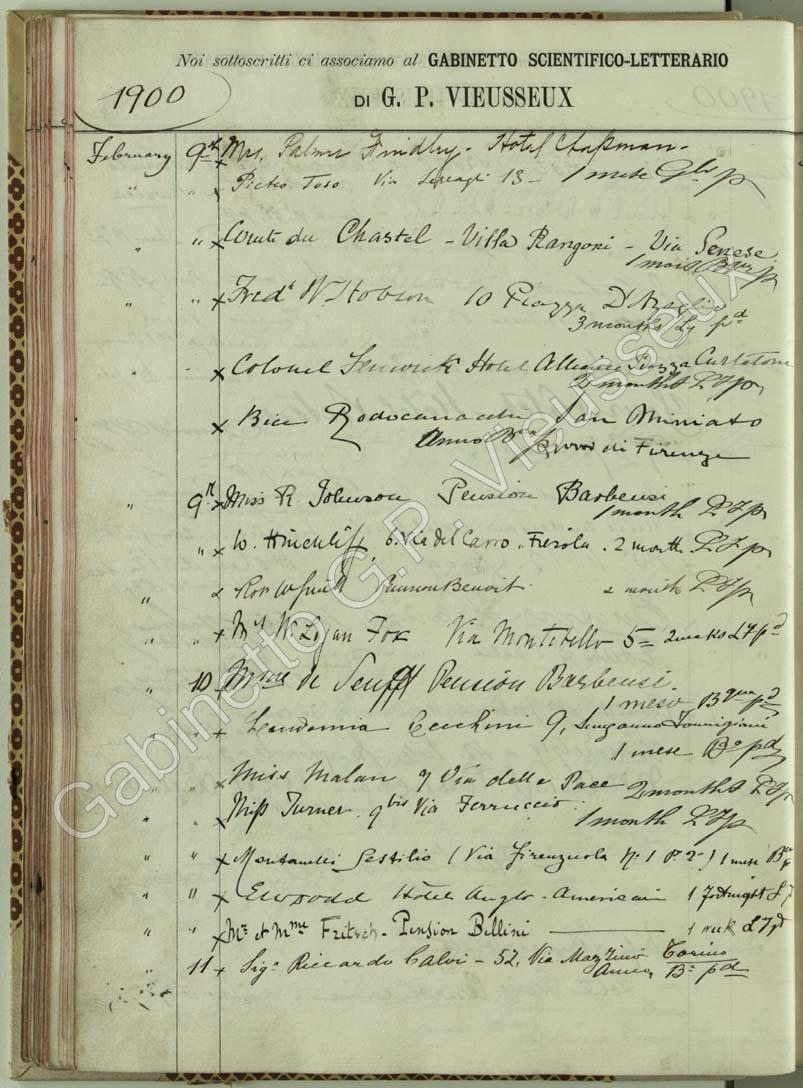 Noi sottoscritti ci associamo al GABINETTO SCIENTIFICO-LETTERARIO
1900
DI G. P. VIEUSSEUX
February 9th Mrs. Palmer Findley. Hotel Chapman.
" Pietro Toso Via Serragli 13 - 1 mese p
" " x du Chastel - Villa Rangoni - Via Senese
1 mois p
" " x Fredk W. Hobson 10 Piazza D'Azeglio
3 months pd
" x Colonel Hotel Piazza Curtatone
2 months p
x Bice Rodocanachi San Miniato
Anno di Firenze
" 9th x Miss R Johnson Pension Barbensi
1 month p
" x W. Hinchliff, 6. Via del Carro, Fiesole. 2 month p
" x Pension Benoit 2 month p
" " x Mrs W. Logan Fox Via Montebello 5 = 2 weeks pd
" 10 Mme de Senfft Pension Barbensi.
1 mese pd
" " x Cecchini 9, Lungarno Torrigiani
1 mese pd
" x Miss Malan 9 Via delle Pace 2 months
" Miss Turner. 9 bis Via Ferruccio. 1 month p
" " x Sestilio (Via Firenzuola No. 1 P. 2o) 1 mese p
" " x Elwood Hôtel Anglo-Americain 1 Fortnight
" " x Mr et Mme Fritsch - Pension Bellini 1 week pd
" 11 x Sigr Riccardo Calvi - 52, Via Mazzini Torino
Anno, Bo pd
Gabinetto G.P. Vieusseux